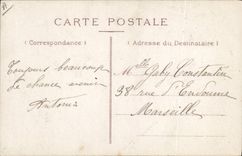 CARTE POSTALE
(Correspondance)
(Adresse du Destinataire)
Toujours beaucoup
de chance
Antonin
Mlle Gaby Constantin
38 rue d'Endoume
Marseille